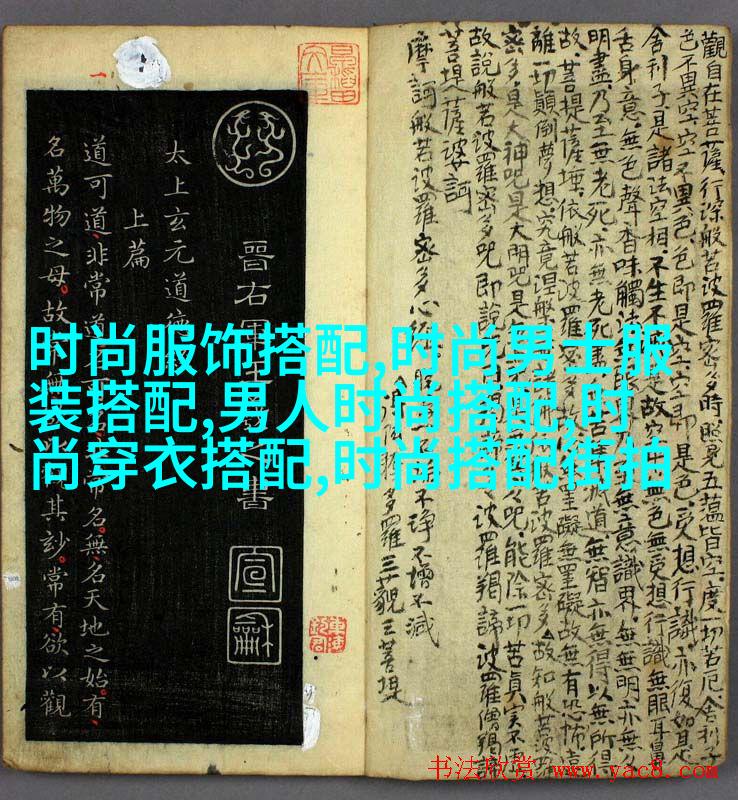 时尚服饰搭配,时尚男士服
装搭配,男人时尚搭配,时
尚穿衣搭配,时尚搭配街拍
觀自在菩薩行深般若波羅密多時照見五蘊皆空度一切苦厄舍利子
色不異空空不異色色即是空空即是色受想行識亦復如是
舍利子是諸法空相不生不是故空中無色無受想行識無眼耳鼻
舌身意無色聲香味觸法無意識界無無明亦無無
明盡乃至無老死亦無老死盡無苦集滅道無智亦無得以無所得
故菩提薩埵依般若波羅密多故罣礙無罣礙故無有恐怖遠
離一切顛倒夢想究竟涅槃般若波羅密多故知般若波羅
密多是大神咒是大明咒是咒能除一切苦真實不虛
故說般若波羅密多咒即說波羅羯諦波羅僧羯諦
菩提薩婆訶
摩訶般若波羅密多心經
不淨不增不減
多羅三藐三菩提
晉右軍王書
宣龢
太上玄元道德經
上篇
道可道非常道常名無名天地之始有
名萬物之母故其妙常有欲以觀
书法欣赏 www.yac8.com